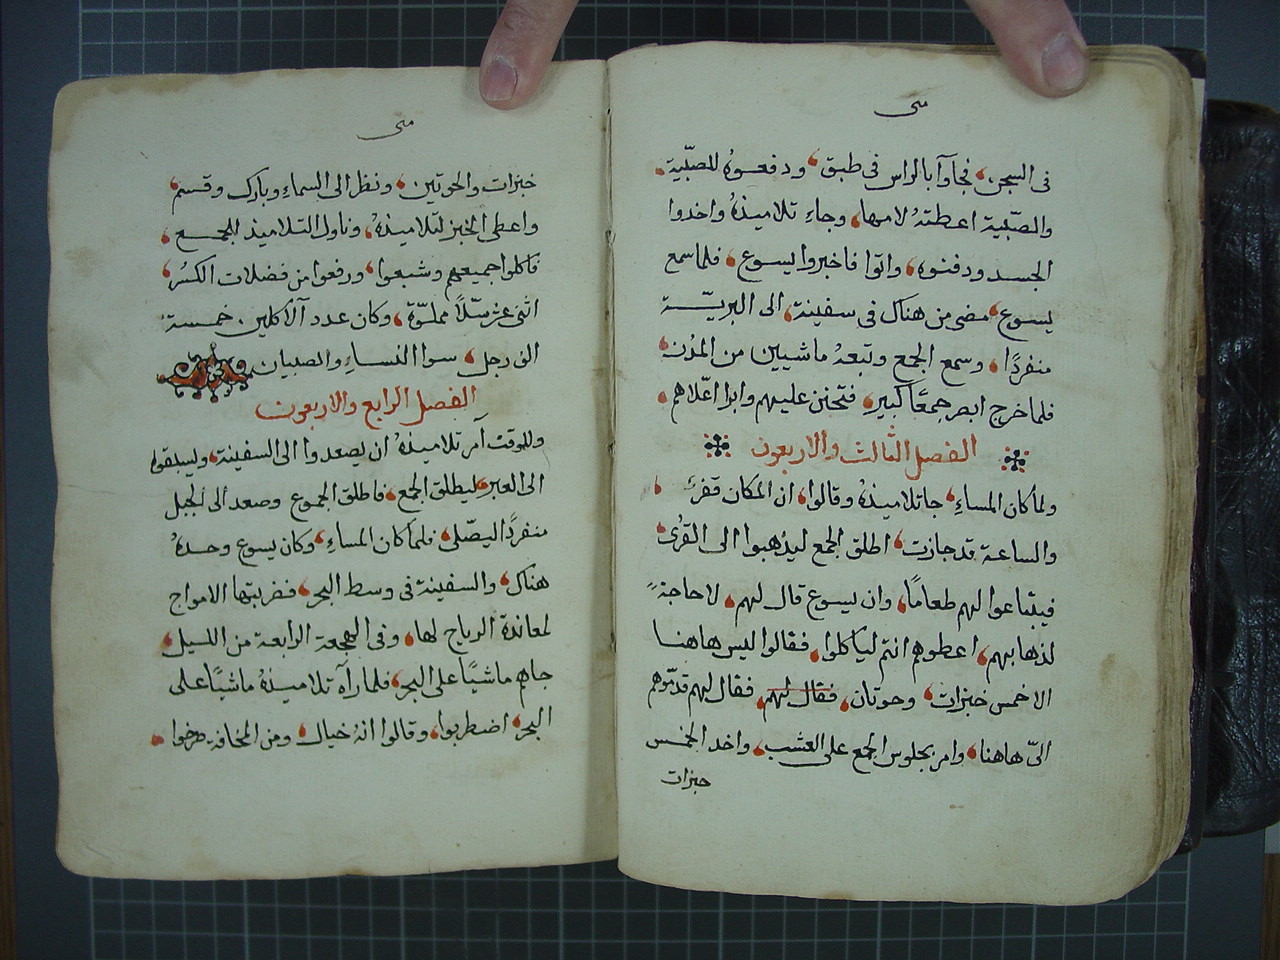 متى
فى السجن، فجاوآ بالراس فى طبق، ودفعوهُ للصبّية
والصّبية اعطتهُ لامها، وجاءِ تلاميذهُ واخدوا
الجسد ودفنوه، واتوا فاخبروا يسوع، فلما سمع
يسوع، مضى من هناك فى سفينة، الى البريّـة
منفردًا، وسمع الجمع وتبعهُ ماشيين من المدُن
فلما خرج ابصر جمعًا كبير، فتحنن عليهم وابرا اعّلاهم
الفصل الثالث والاربعون
ولما كان المساءِ، جا تلاميذهُ وقالوا، ان المكان قفرٌ
والساعة قد جازت، اطلق الجمع ليذهبوا الى القرُى
فيبتاعوا لهم طعامًا، وان يسوع قال لهم، لا حاجة
لذهابهم، اعطوهم انتم لياكلوا، فقالوا ليس هاهنا
الا خمس خبزات، وحوتان، فقال لهم، فقال لهم قدمّوهم
الىّ هاهنا، وامر بجلوس الجمع على العشب، واخد الخمس
خبزات
متى
خبزات والحوتين، ونظر الى السماءِ وبارك وقسم
واعطى الخبز لتلاميذهُ، وناول التلاميذ للجمع
فاكلوا جميعهم وشبعوا، ورفعوا من فضلات الكسُر
اثنى عشر سّلاً مملوّة، وكان عدد الآكلين، خمسة
الف رجل، سوا النساءِ والصبيان
الفصل الرابع والاربعون
وللوقت آمر تلاميذهُ ان يصعدوا الى السفينة، وليسبقوا
الى العبر، ليطلق الجمع، فاطلق الجموع وصعد الى الجبل
منفردًا ليصّلى، فلما كان المساءِ، وكان يسوع وحدهُ
هناك، والسفينة فى وسط البحر، فضربتها الامواج
لمعاندة الرياح لها، وفى الهجعة الرابعة من الليل
جاهم ماشيًا على البحر، فلما رآه تلاميذهُ ماشيًا على
البحر، اضطربوا، وقالوا انهُ خيال، ومن المخافةِ صرخوا